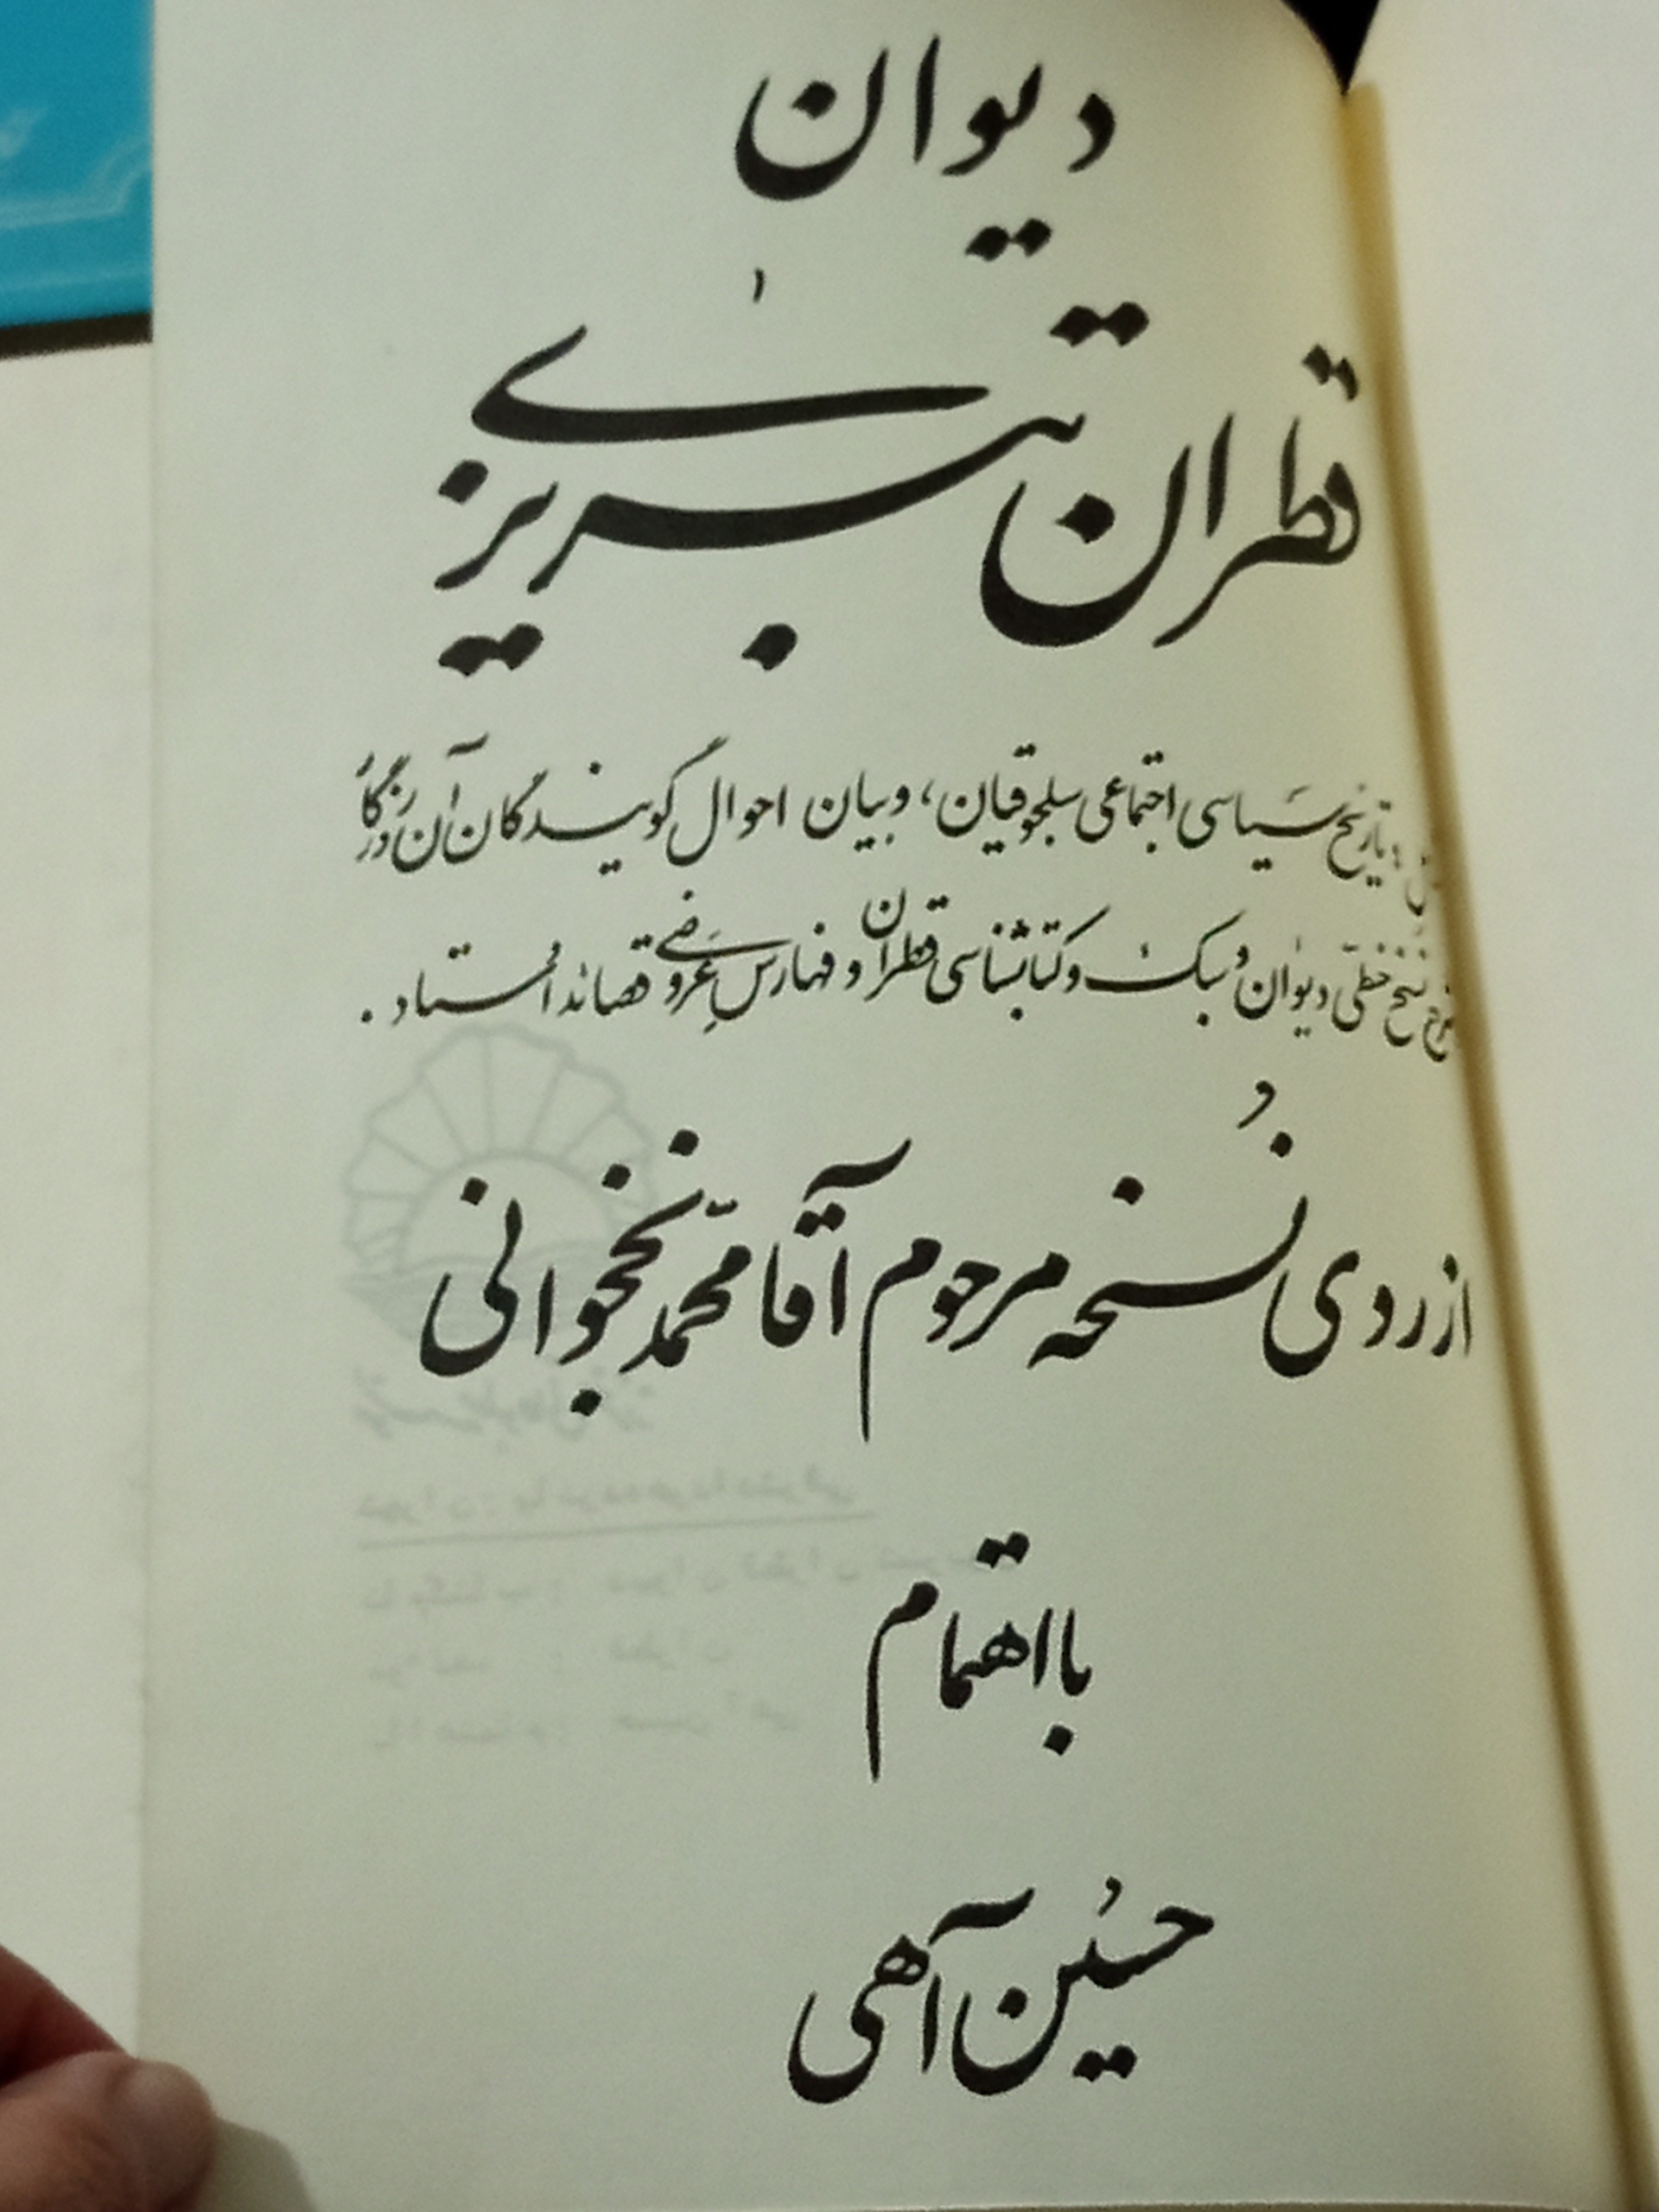 دیوان
قطران تبریزی
: تاریخ سیاسی اجتماعی سلجوقیان، و بیان احوال گویندگان آن روزگار
نسخ خطی دیوان و سبک و کتابشناسی قطران و فهارس عروضی قصائد استاد.
از روی نُسخه مرحوم آقا محمّد نخجوانی
با اهتمام
حُسین آهی